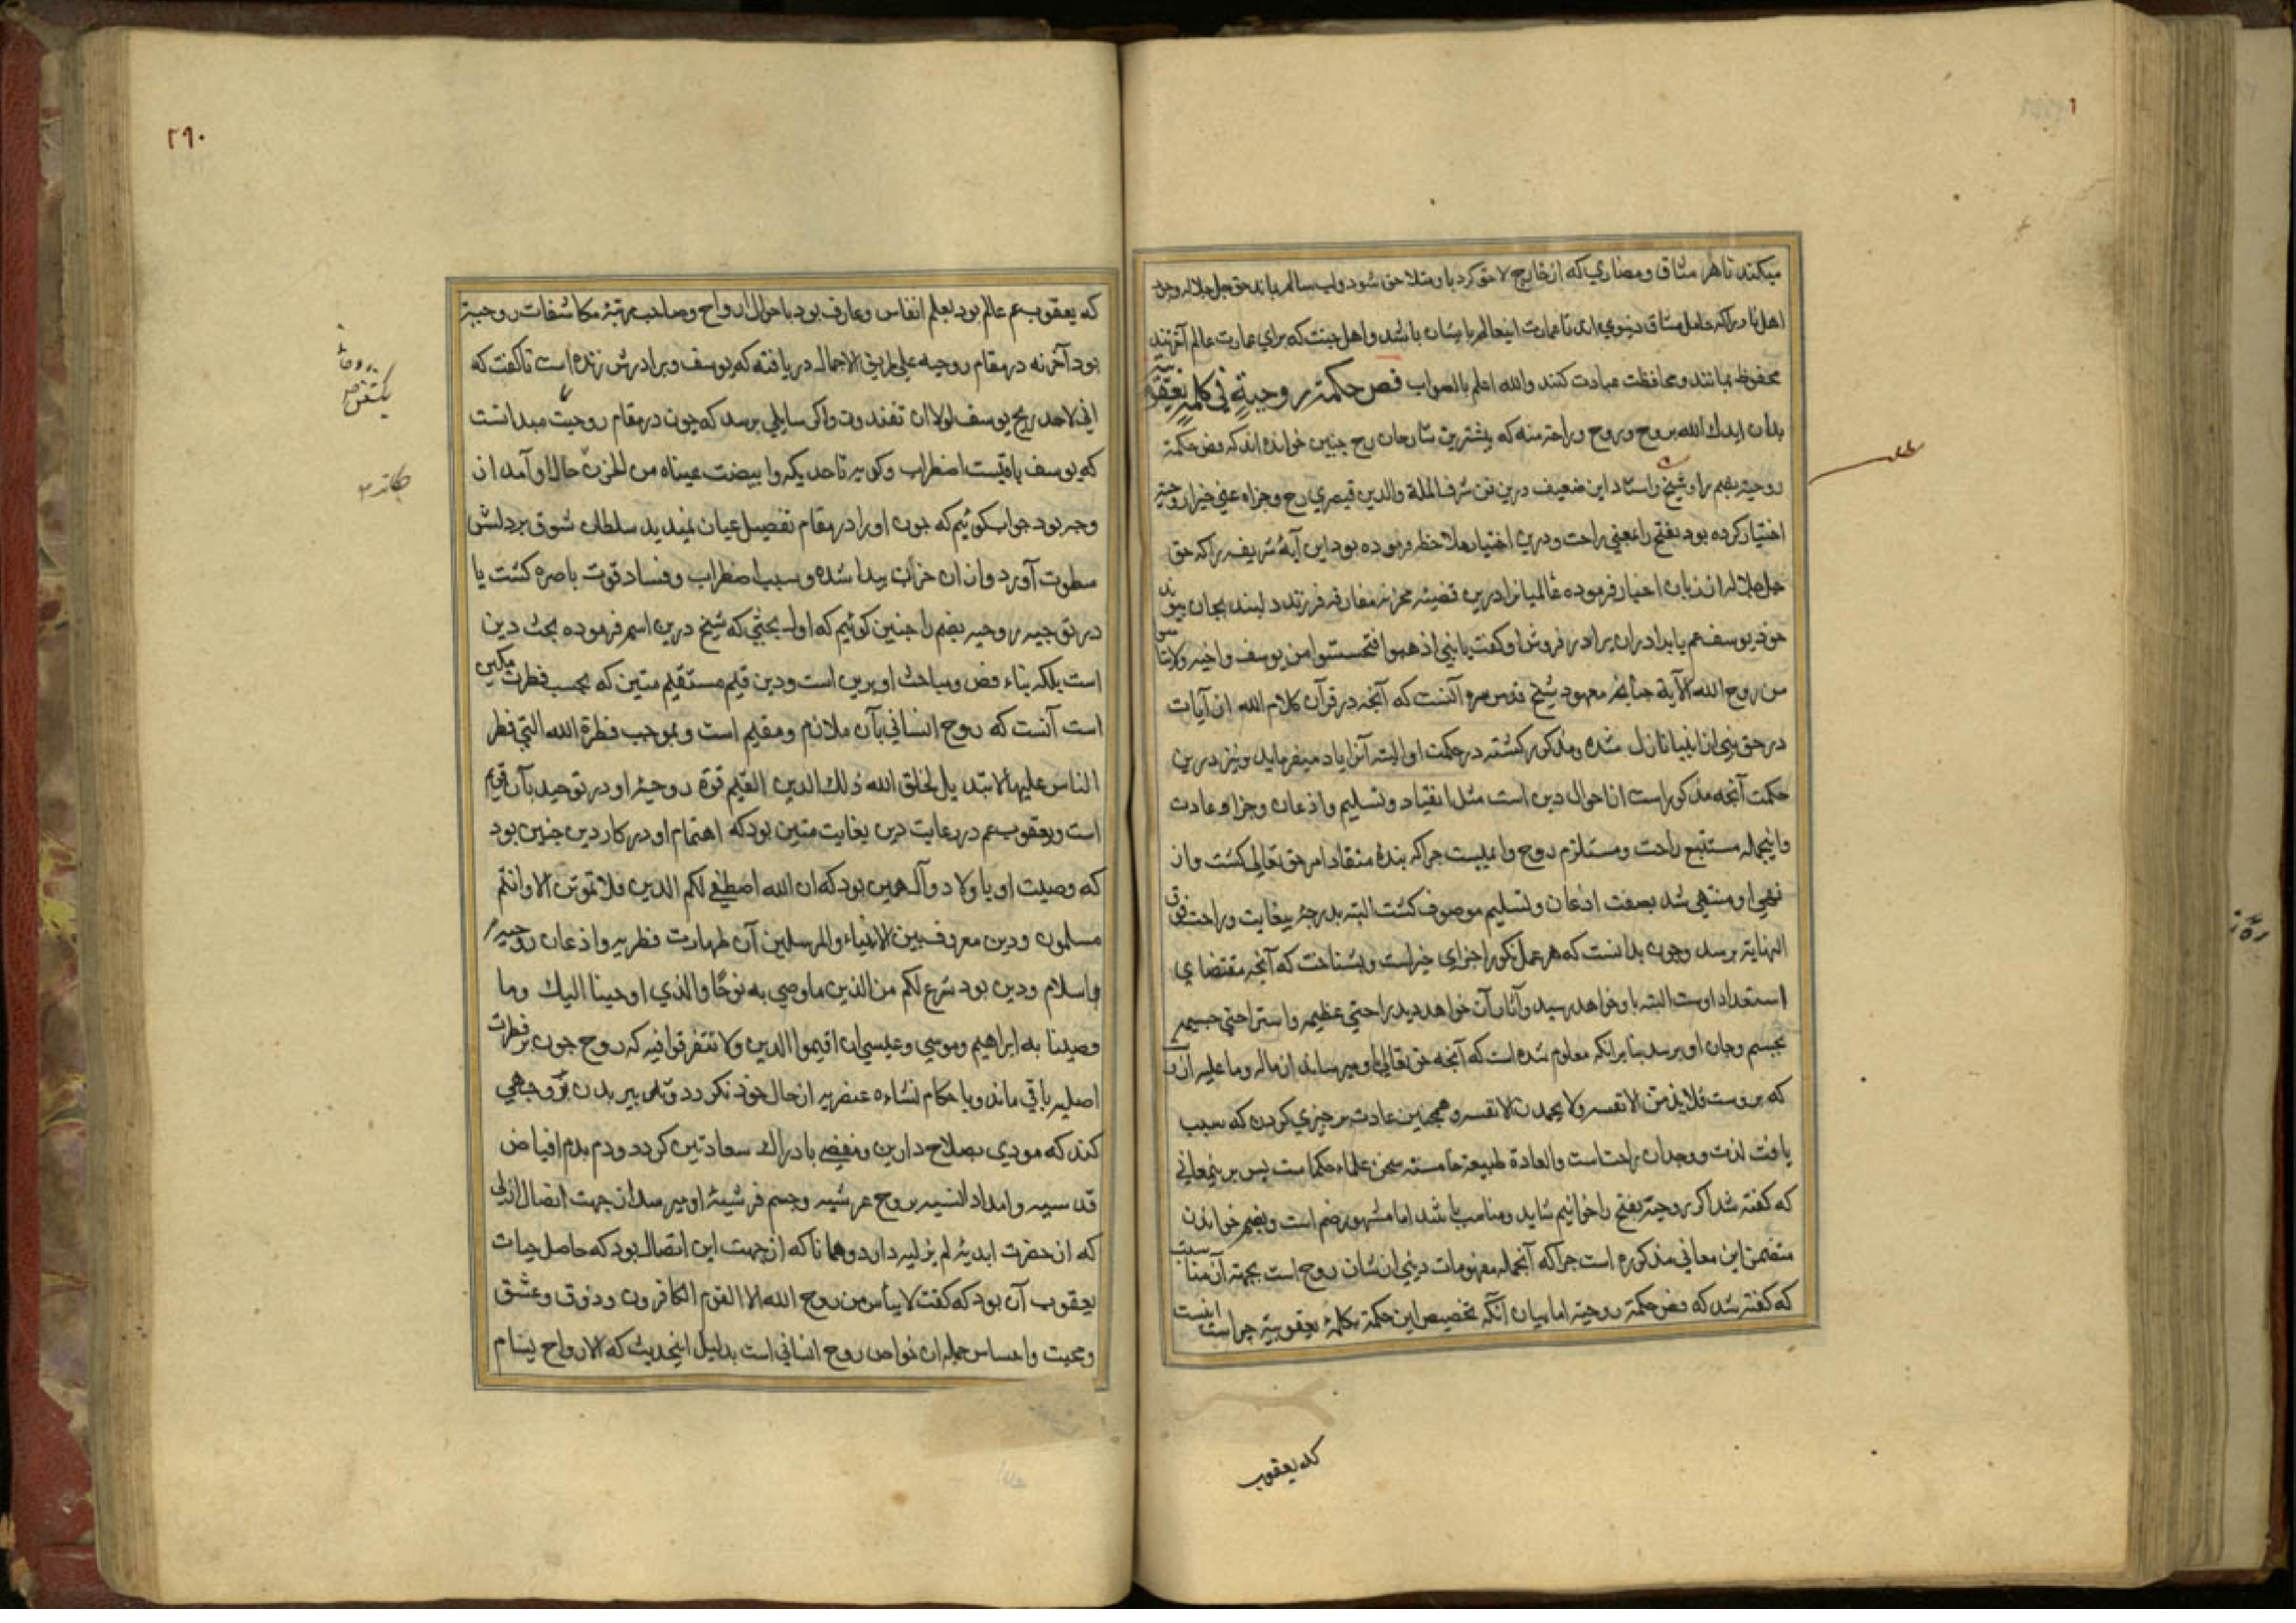 میکند تا هر مشاق ومضاری که از خارج لاحق کردد باو متلاحق شود ولب سالم بماند حق جل جلاله وجود
اهل نار را که حامل مشاق دنیوی اند تا عمارت اینعالم بایشان باشد واهل جنت که برای عمارت عالم آخرتند
محفوظ بمانند ومحافظت عبادت کنند والله اعلم بالصواب فص حکمة روحیة فی کلمة یعقوبیة
بدان ایدك الله بروح وروح وراحة منه که بیشترین شارحان رح چنین خوانده اند که فص حکمة
روحیة بضم را وشیخ واستاد این ضعیف درین فن شرف الملة والدین قیصری رح وجزاه عنی خیرا روحیة
اختیار کرده بود بفتح را بمعنی راحت ودرین اختیار ملاحظه فرموده بود این آیهٔ شریفه را که حق
جل جلاله از زبان اخبار فرموده عالمیانرا درین قضیهٔ محزنه مفارقه فرزند دلبند بجان پیوند
خود یوسف عم با برادران برادر فروش او کفت یا بنی اذهبوا فتحسسوا من یوسف واخیه ولا تیأسوا
من روح الله الآیة چنانچه معهود شیخ قدس سره آنست که آنچه در قرآن کلام الله از آیات
در حق نبی از انبیا نازل شده ومذکور کشته در حکمت او البته آنرا یاد میفرماید ونیز درین
حکمت آنچه مذکور است از احوال دین است مثل انقیاد وتسلیم واذعان وجزا وعادت
واینجمله مستتبع راحت ومستلزم روح واعیلیست چرا که بندهٔ منقاد امر حق تعالی کشت واز
نهی او منتهی شد بصفت اذعان وتسلیم موصوف کشت البته بدرجهٔ بیغایت وراحت فوق
النهایة برسد وچون بدانست که هر عمل نکو را جزای خیر است وبشناخت که آنچه مقتضای
استعداد اوست البته باو خواهد رسید وآثار آن خواهد دید راحتی عظیم واستراحتی جسیم
بجسم وجان او برسد بنا برانکه معلوم شده است که آنچه حق تعالی باو میرساند از ماله وما علیه ازو
که بروست فلا یذمن الا نفسه ولا یحمدن الا نفسه وهمچنین عادت بر چیزی کردن که سبب
یافت لذت ووجدان راحت است والعادة طبیعة خامسة سخن علماء حکماست پس بر ینمعانی
که کفته شد اکر روحیة بفتح را خوانیم شاید ومناسب باشد اما مشهور ضم است وبضم خواندن
متضمن این معانی مذکوره است چرا که آنجمله مفهومات دینی از شان روح است بجهة آن مناسبت
که کفته شد که فص حکمة روحیة اما بیان آنکه تخصیص این حکمة بکلمهٔ یعقوبیة چراست اینست
که یعقوب
۲۹۰
که یعقوب عم عالم بود بعلم انفاس وعارف بود باحوال ارواح وصاحب مرتبهٔ مکاشفات روحیة
بود آخر نه در مقام روحیه علی طریق الاجمال دریافته که یوسف وبرادرش زنده است تا کفت که
انی لاجد ریح یوسف لولا ان تفندون واکر سایلی برسد که چون در مقام روحیت میدانست
که یوسف باقیست اضطراب وکریه تا حدیکه وابیضت عیناه من الحزن حال او آمد از
وجه بود جواب کوئیم که چون او را در مقام تفصیل عیان نمیدید سلطان شوق بر دلش
سطوت آورد واز آن حزن پیدا شده وسبب اضطراب وفساد قوت باصره کشت یا
در توجیه روحیه بضم را چنین کوئیم که اول بحثی که شیخ درین اسم فرموده بحث دین
است بلکه بناء فص ومباحث او برین است ودین قیم مستقیم متین که بحسب فطرت مکین
است آنست که روح انسانی بآن ملازم ومقیم است وبموجب فطرة الله التی فطر
الناس علیها لا تبدیل لخلق الله ذلك الدین القیم قوة روحیهٔ او در توحید بآن قیم
است ویعقوب عم در رعایت دین بغایت متین بود که اهتمام او در کار دین چنین بود
که وصیت او با ولاد وآل همین بود که ان الله اصطفی لکم الدین فلا تموتن الا وانتم
مسلمون ودین معروف بین الانبیاء والمرسلین آن طهارت فطریه واذعان روحیه
واسلام ودین بود شرع لکم من الدین ما وصی به نوحًا والذی اوحینا الیك وما
وصینا به ابراهیم وموسی وعیسی ان اقیموا الدین ولا تتفرقوا فیه که روح چون بر فطرت
اصلیه باقی ماند وباحکام نشاءه عنصریه از حال خود نکردد وتدبیر بدن بر وجهی
کند که مودی بصلاح دارین ومفضی بادراك سعادتین کردد ودم بدم افیاض
قدسیه وامداد انسیه بروح عرشیه وجسم فرشیهٔ او میرسد از جهت اتصال ازلی
که از حضرت ابدیهٔ لم یزلیه دارد وهمانا که از جهت این اتصال بود که حاصل حیات
یعقوب آن بود که کفت لا ییأس من روح الله الا القوم الکافرون وذوق وعشق
ومحبت واحساس جمله از خواص روح انسانی است بدلیل اینحدیث که الارواح یتسام